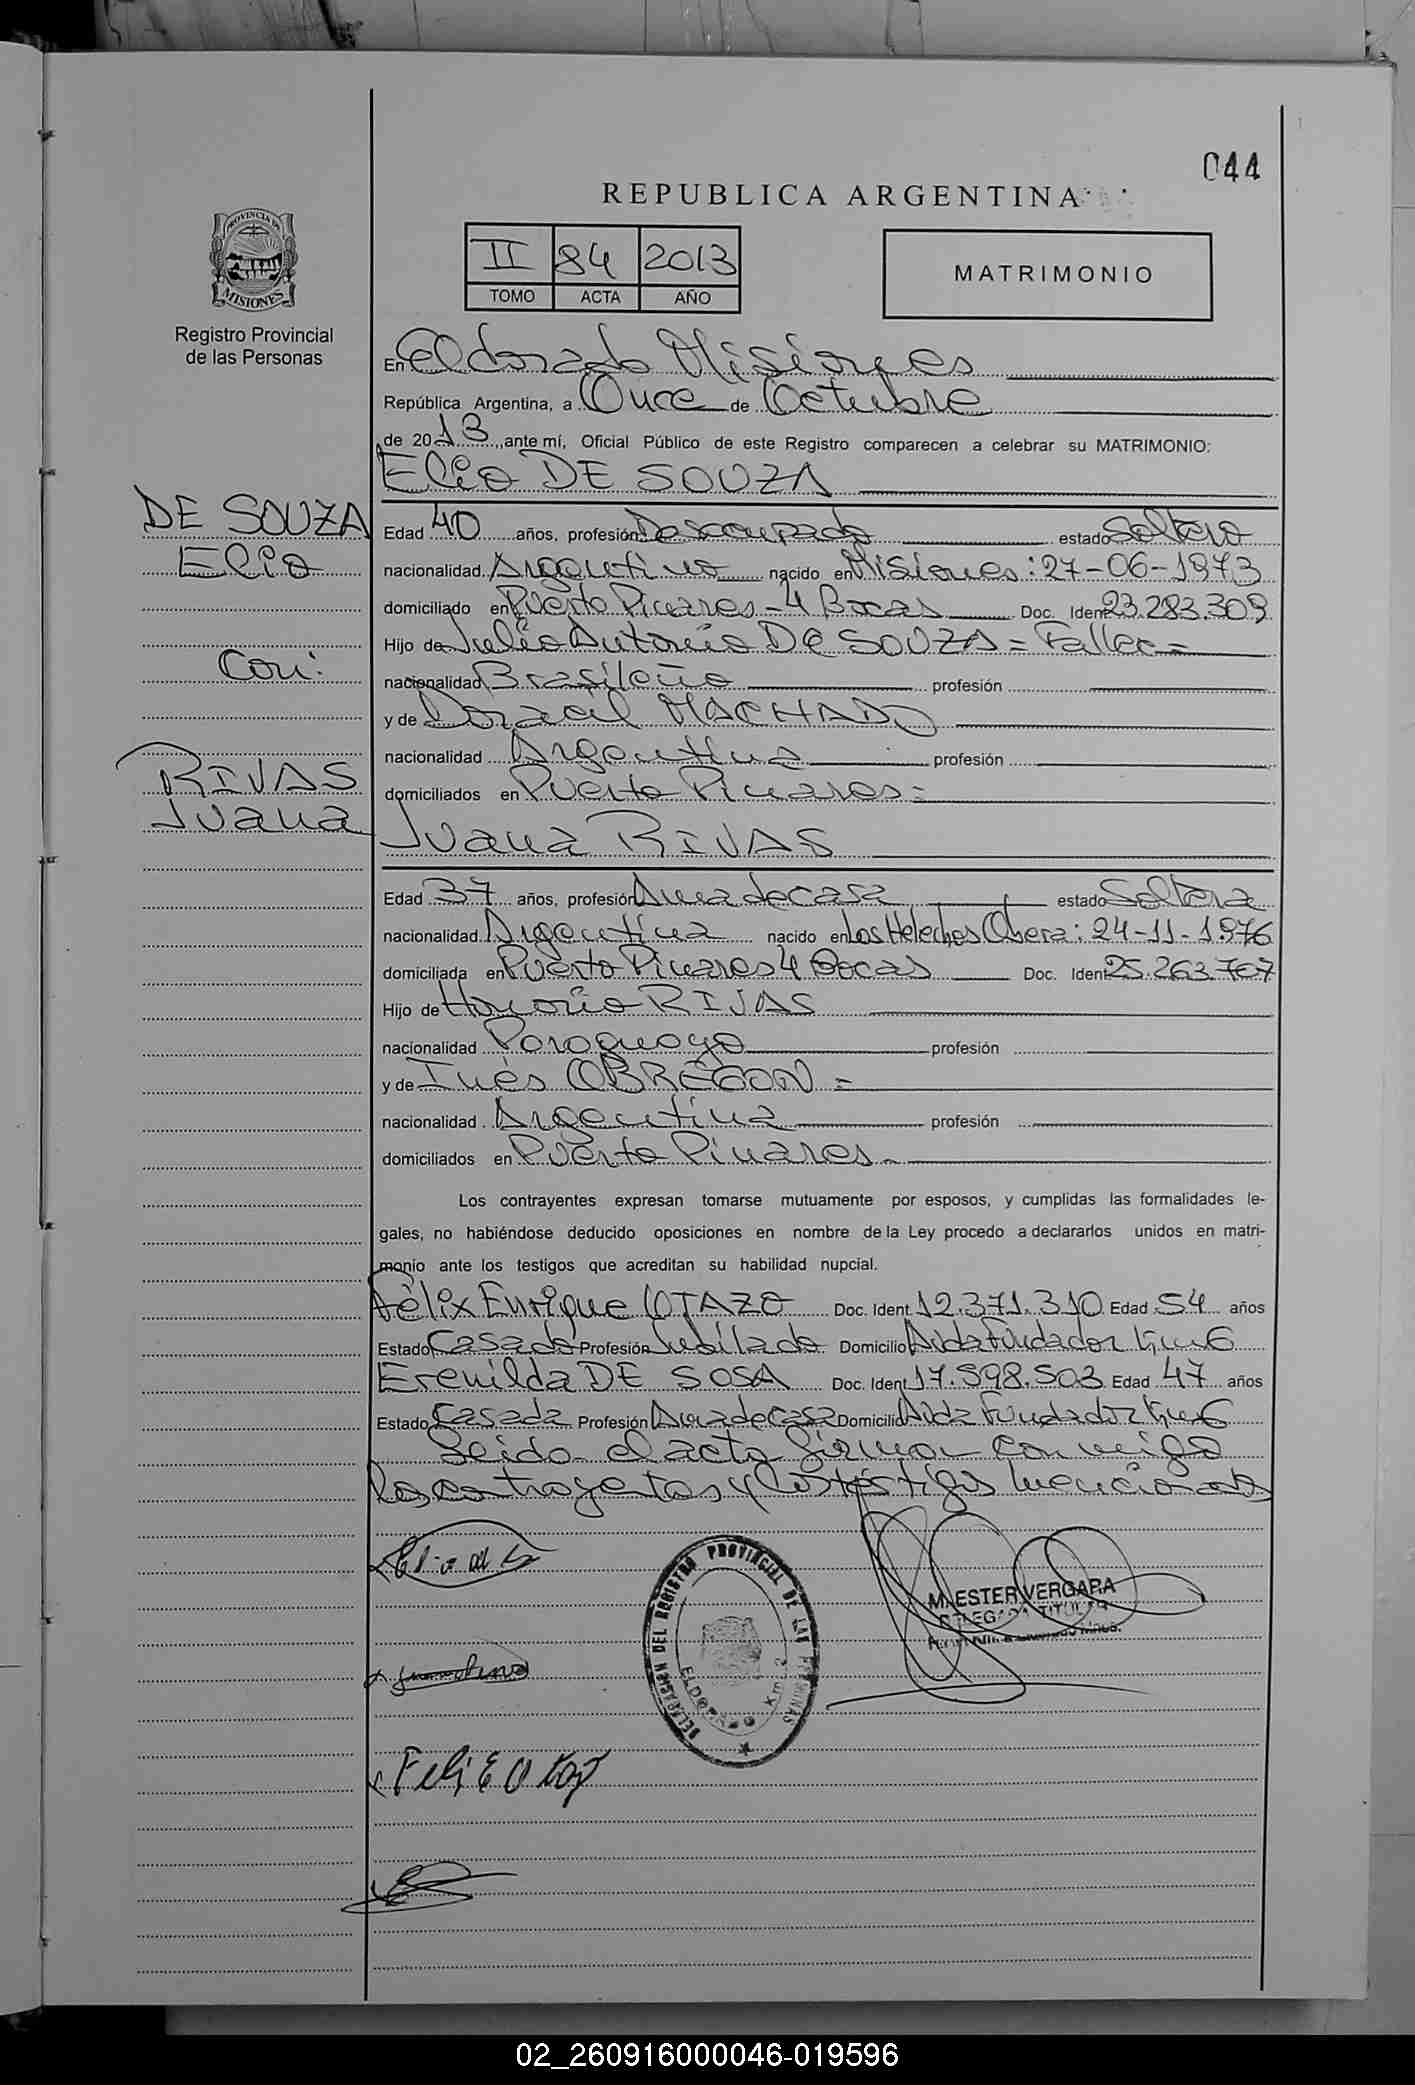 044
REPUBLICA ARGENTINA
PROVINCIA DE
MISIONES
Registro Provincial
de las Personas
II 84 2013
TOMO ACTA AÑO
MATRIMONIO
En Eldorado Misiones
República Argentina, a Once de Octubre
de 2013, ante mí, Oficial Público de este Registro comparecen a celebrar su MATRIMONIO:
Elio DE SOUZA
DE SOUZA
Elio
Con:
RIVAS
Juana
Edad 40 años, profesión Desocupado estado Soltero
nacionalidad Argentino nacido en Misiones: 27-06-1973
domiciliado en Puerto Pinares - 4 Bocas Doc. Ident 23.283.309
Hijo de Julio Antonio DE SOUZA = Fallec =
nacionalidad Brasileño profesión
y de Doracil MACHADO
nacionalidad Argentina profesión
domiciliados en Puerto Pinares =
Juana RIVAS
Edad 37 años, profesión Ama de casa estado Soltera
nacionalidad Argentina nacido en Los Helechos Obera: 24-11-1976
domiciliada en Puerto Pinares 4 Bocas Doc. Ident 25.263.707
Hijo de Honorio RIVAS
nacionalidad Paraguayo profesión
y de Inés OBREGON =
nacionalidad Argentina profesión
domiciliados en Puerto Pinares
Los contrayentes expresan tomarse mutuamente por esposos, y cumplidas las formalidades le-
gales, no habiéndose deducido oposiciones en nombre de la Ley procedo a declararlos unidos en matri-
monio ante los testigos que acreditan su habilidad nupcial.
Félix Enrique OTAZO Doc. Ident 12.371.310 Edad 54 años
Estado Casado Profesión Jubilado Domicilio Avda Fundador Km 6
Erenilda DE SOSA Doc. Ident 17.598.503 Edad 47 años
Estado Casada Profesión Ama de Casa Domicilio Avda Fundador Km 6
Leido el acta firman conmigo
los contrayentes y los testigos mencionados
DELEGACIÓN DEL REGISTRO PROVINCIAL DE LAS PERSONAS
ELDORADO Km. 2
M. ESTER VERGARA
DELEGADA TITULAR
02_260916000046-019596